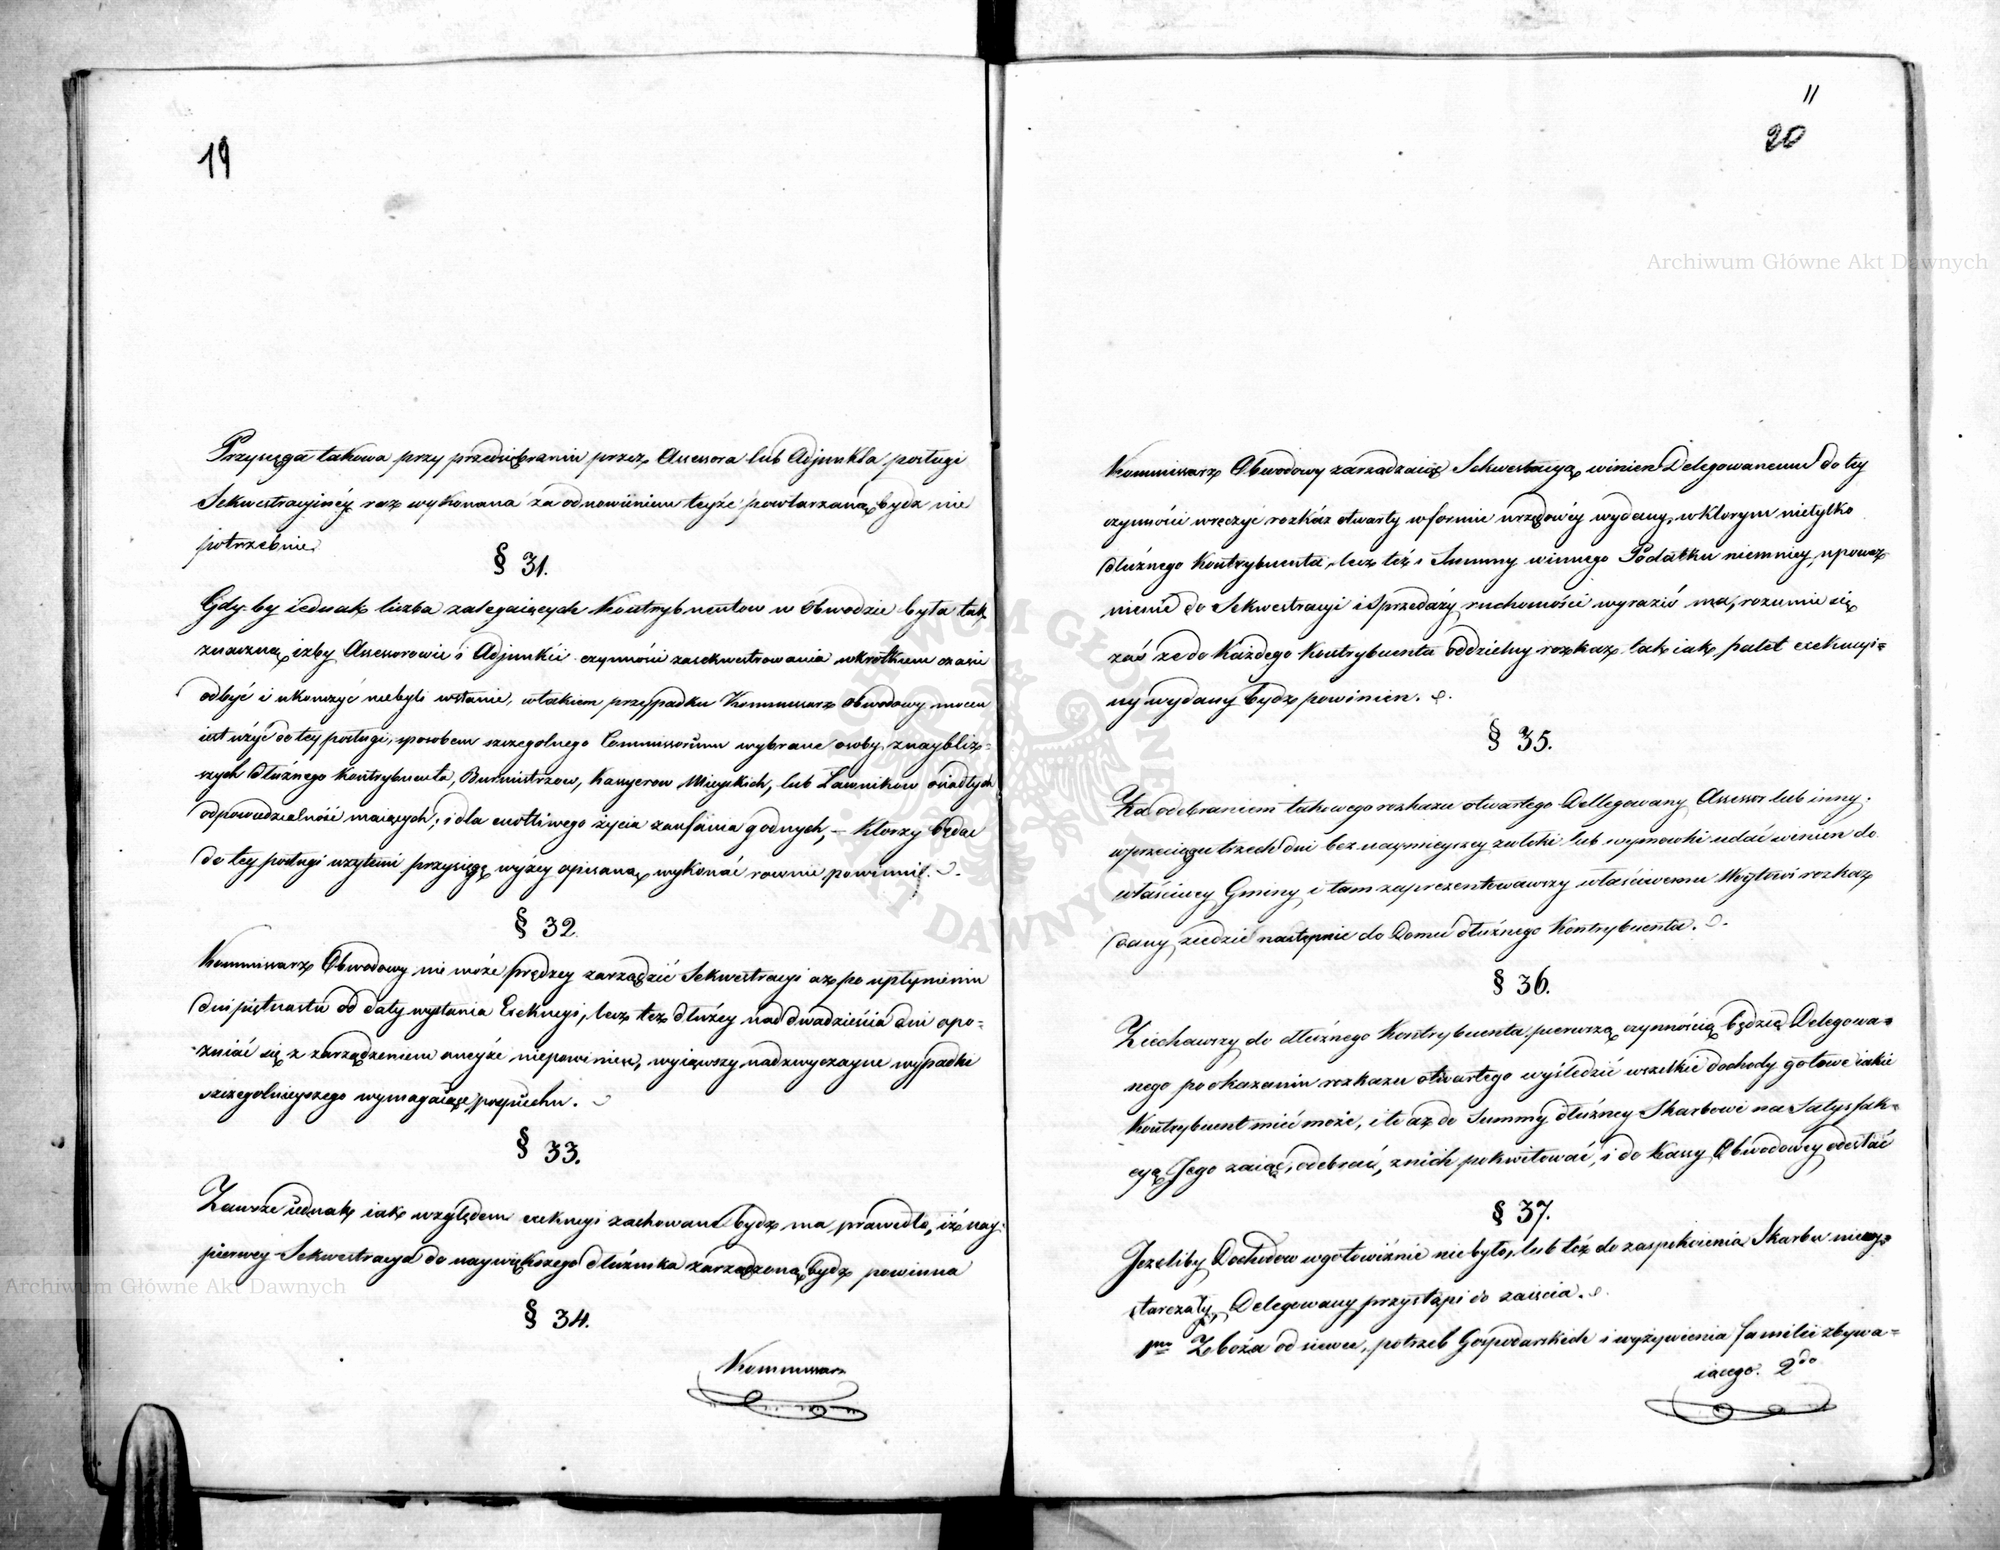 19
Przysięga takowa przy przedsiębraniu przez Assessora lub Adjunkta posługi
Sekwestracyinéy raz wykonana za odnowieniem teyże powtarzaną bydz nie
potrzebuie.
§ 31.
Gdy-by iednak liczba zalegaiących Kontrybuentow w Obwodzie była tak
znaczną, iżby Assessorowie i Adjunkci czynności zasekwestrowania wkrótkim czasie
odbyć i ukończyć niebyli wstanie, wtakiem przypadku Kommissarz Obwodowy mocen
iest użyć do tey posługi, sposobem szczegolnego Commissorium wybrane osoby, znaybliz=
szych dłużnego Kontrybuenta, Burmistrzow, Kassyerow Mieyskich, lub Ławnikow osiadłych
odpowiedzialność maiących, i dla cnotliwego życia zaufania godnych, – ktorzy będąc
do tey posługi użytemi przysięgę wyżey opisaną wykonać rownie powinni.
§ 32.
Kommissarz Obwodowy nie może prędzey zarządzić Sekwestracyi aż po upłynieniu
dni piętnastu od daty wysłania Exekucyi, lecz też dłużey nad dwadzieścia dni opo=
zniać się z zarządzeniem oneyże niepowinien, wyiąwszy nadzwyczayne wypadki
szczegolnieyszego wymagaiące pospiechu.
§ 33.
Zawsze iednak iak względem exekucyi zachowane bydz ma prawidło, iż nay-
pierwey Sekwestracya do naywiększego dłużnika zarządzoną bydz powinna
§ 34.
Kommissarz
11
20
Kommissarz Obwodowy zarządzaiąc Sekwestracyą, winien Delegowanemu do tey
czynności wręczyć rozkaz otwarty wformie urzędowéy wydany, wktorym nietylko
dłużnego Kontrybuenta, lecz też i Summy winnego Podatku niemniey, upoważ
nienie do Sekwestracyi i Sprzedaży ruchomości wyrazić ma, rozumie się
zaś że do każdego Kontrybuenta oddzielny rozkaz tak iak palet exekucyi=
ny wydany bydz powinien.
§ 35.
Za odebraniem takowego rozkazu otwartego Dellegowany Assessor lub inny,
wprzeciągu trzech dni bez naymnieyszey zwłoki lub wymowki udać winien do
właściwey Gminy i tam zaprezentowawszy właściwemu Woytowi rozkaz
dany, ziedzie następnie do Domu dłużnego Kontrybuenta.
§ 36.
Ziechawszy do dłużnego Kontrybuenta, pierwszą czynnością będzie Delegowa=
nego po okazaniu rozkazu otwartego wyśledzić wszelkie dochody gotowe iakie
Kontrybuent mieć może, i te aż do Summy dłużney Skarbowi na Satysfak=
cyą Jego zaiąć, odebrać, znich pokwitować, i do Kassy Obwodowey odesłać
§ 37.
Jeżeliby Dochodow wgotowiźnie niebyło, lub też do zaspokoienia Skarbu niewy=
starczały, Delegowany przystąpi do zaięcia.
1mo Zboża od siewu, potrzeb Gospodarskich i wyżywienia familii zbywa=
iącego. 2do
Archiwum Główne Akt Dawnych
Archiwum Główne Akt Dawnych
ARCHIWUM GŁÓWNE AKT DAWNYCH